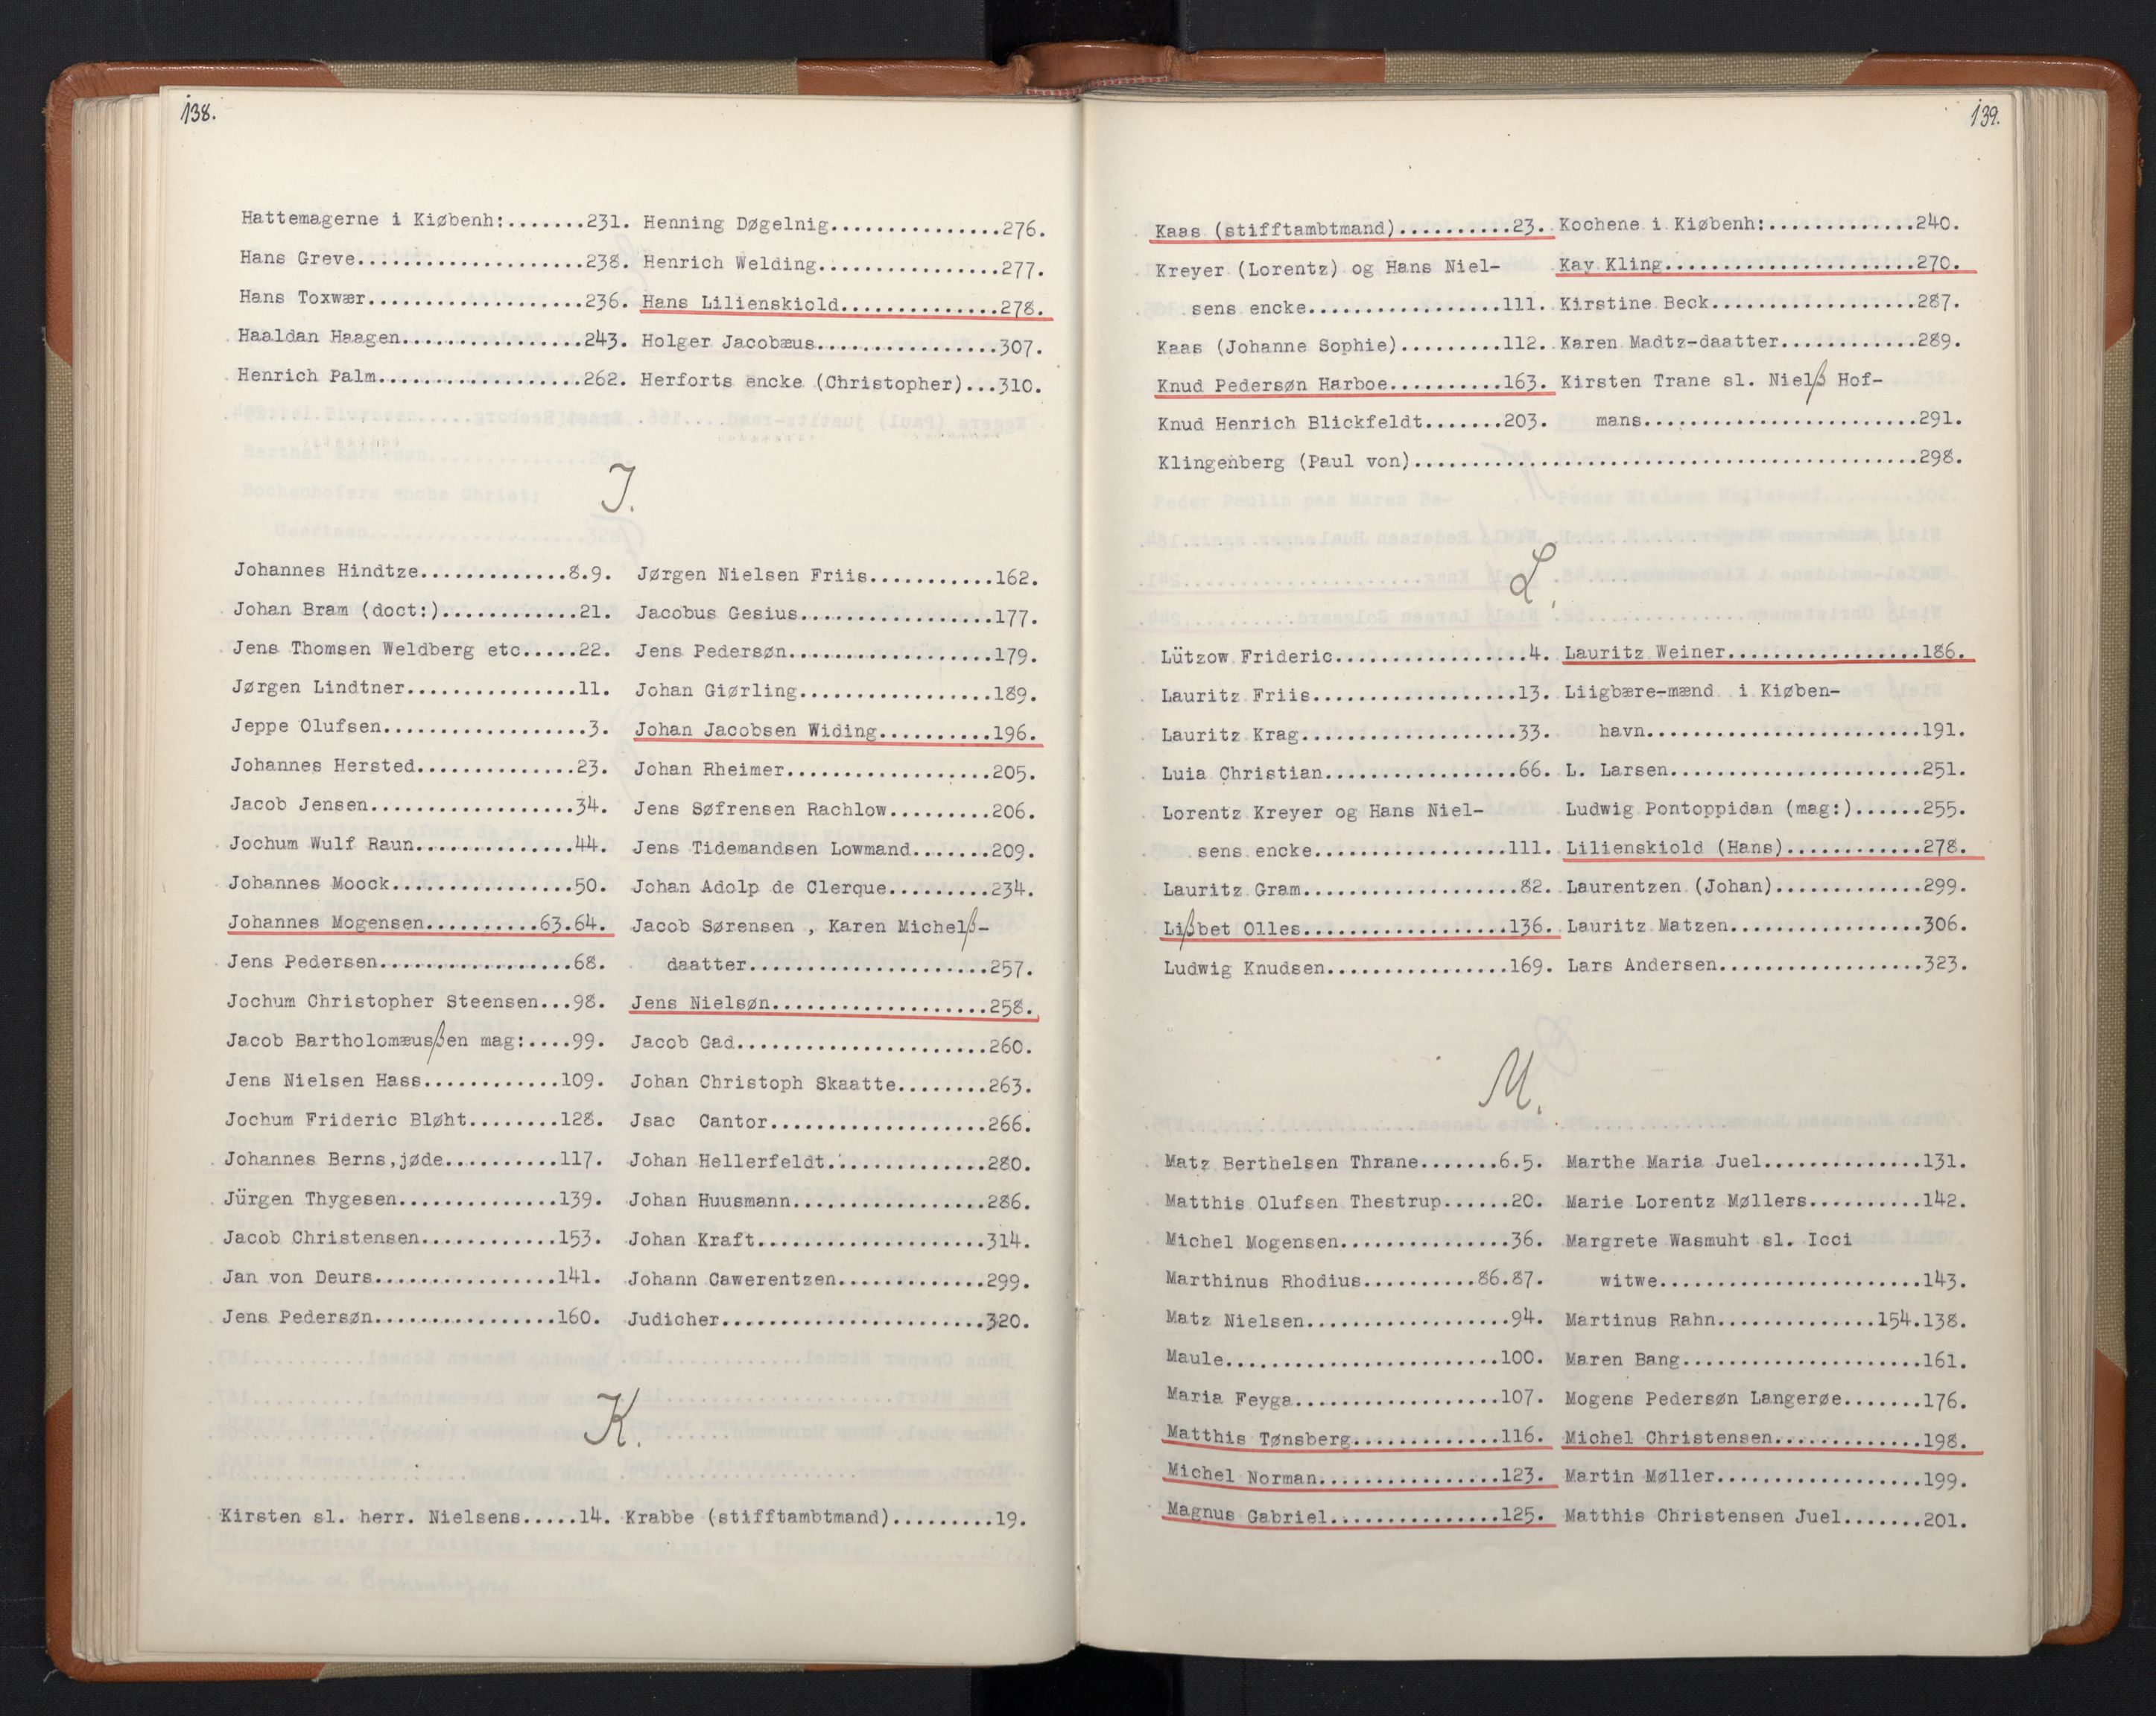 138.
Hattemagerne i Kiøbenh:.......231.
Hans Greve....................238.
Hans Toxwær...................236.
Haaldan Haagen................243.
Henrich Palm..................262.
Henning Døgelnig...............276.
Henrich Welding................277.
Hans Lilienskiold..............278.
Holger Jacobæus................307.
Herforts encke (Christopher)...310.
J.
Johannes Hindtze.............8.9.
Johan Bram (doct:)............21.
Jens Thomsen Weldberg etc.....22.
Jørgen Lindtner...............11.
Jeppe Olufsen..................3.
Johannes Hersted..............23.
Jacob Jensen..................34.
Jochum Wulf Raun..............44.
Johannes Moock................50.
Johannes Mogensen..........63.64.
Jens Pedersen.................68.
Jochum Christopher Steensen...98.
Jacob Bartholomæusßen mag:....99.
Jens Nielsen Hass............109.
Jochum Frideric Bløht........128.
Johannes Berns,jøde..........117.
Jürgen Thygesen..............139.
Jacob Christensen............153.
Jan von Deurs................141.
Jens Pedersøn................160.
Jørgen Nielsen Friis...........162.
Jacobus Gesius.................177.
Jens Pedersøn..................179.
Johan Giørling.................189.
Johan Jacobsen Widing..........196.
Johan Rheimer..................205.
Jens Søfrensen Rachlow.........206.
Jens Tidemandsen Lowmand.......209.
Johan Adolp de Clerque.........234.
Jacob Sørensen , Karen Michelß-
daatter.....................257.
Jens Nielsøn...................258.
Jacob Gad......................260.
Johan Christoph Skaatte........263.
Jsac Cantor...................266.
Johan Hellerfeldt..............280.
Johan Huusmann.................286.
Johan Kraft....................314.
Johann Cawerentzen.............299.
Judicher.......................320.
K.
Kirsten sl. herr. Nielsens.....14.
Krabbe (stifftambtmand).........19.
139.
Kaas (stifftambtmand)..........23.
Kreyer (Lorentz) og Hans Niel-
sens encke.................111.
Kaas (Johanne Sophie).........112.
Knud Pedersøn Harboe..........163.
Knud Henrich Blickfeldt.......203.
Klingenberg (Paul von)...........................................298.
Kochene i Kiøbenh:.............240.
Kay Kling......................270.
Kirstine Beck..................287.
Karen Madtz-daatter............289.
Kirsten Trane sl. Nielß Hof-
mans........................291.
L.
Lützow Frideric.................4.
Lauritz Friis..................13.
Lauritz Krag...................33.
Luia Christian.................66.
Lorentz Kreyer og Hans Niel-
sens encke.................111.
Lauritz Gram...................82.
Lißbet Olles..................136.
Ludwig Knudsen................169.
Lauritz Weiner.................186.
Liigbære-mænd i Kiøben-
havn........................191.
L. Larsen......................251.
Ludwig Pontoppidan (mag:)......255.
Lilienskiold (Hans)............278.
Laurentzen (Johan).............299.
Lauritz Matzen.................306.
Lars Andersen..................323.
M.
Matz Berthelsen Thrane.......6.5.
Matthis Olufsen Thestrup......20.
Michel Mogensen...............36.
Marthinus Rhodius..........86.87.
Matz Nielsen..................94.
Maule........................100.
Maria Feyga..................107.
Matthis Tønsberg.............116.
Michel Norman................123.
Magnus Gabriel...............125.
Marthe Maria Juel..............131.
Marie Lorentz Møllers..........142.
Margrete Wasmuht sl. Icci
witwe.......................143.
Martinus Rahn..............154.138.
Maren Bang.....................161.
Mogens Pedersøn Langerøe.......176.
Michel Christensen.............198.
Martin Møller..................199.
Matthis Christensen Juel.......201.